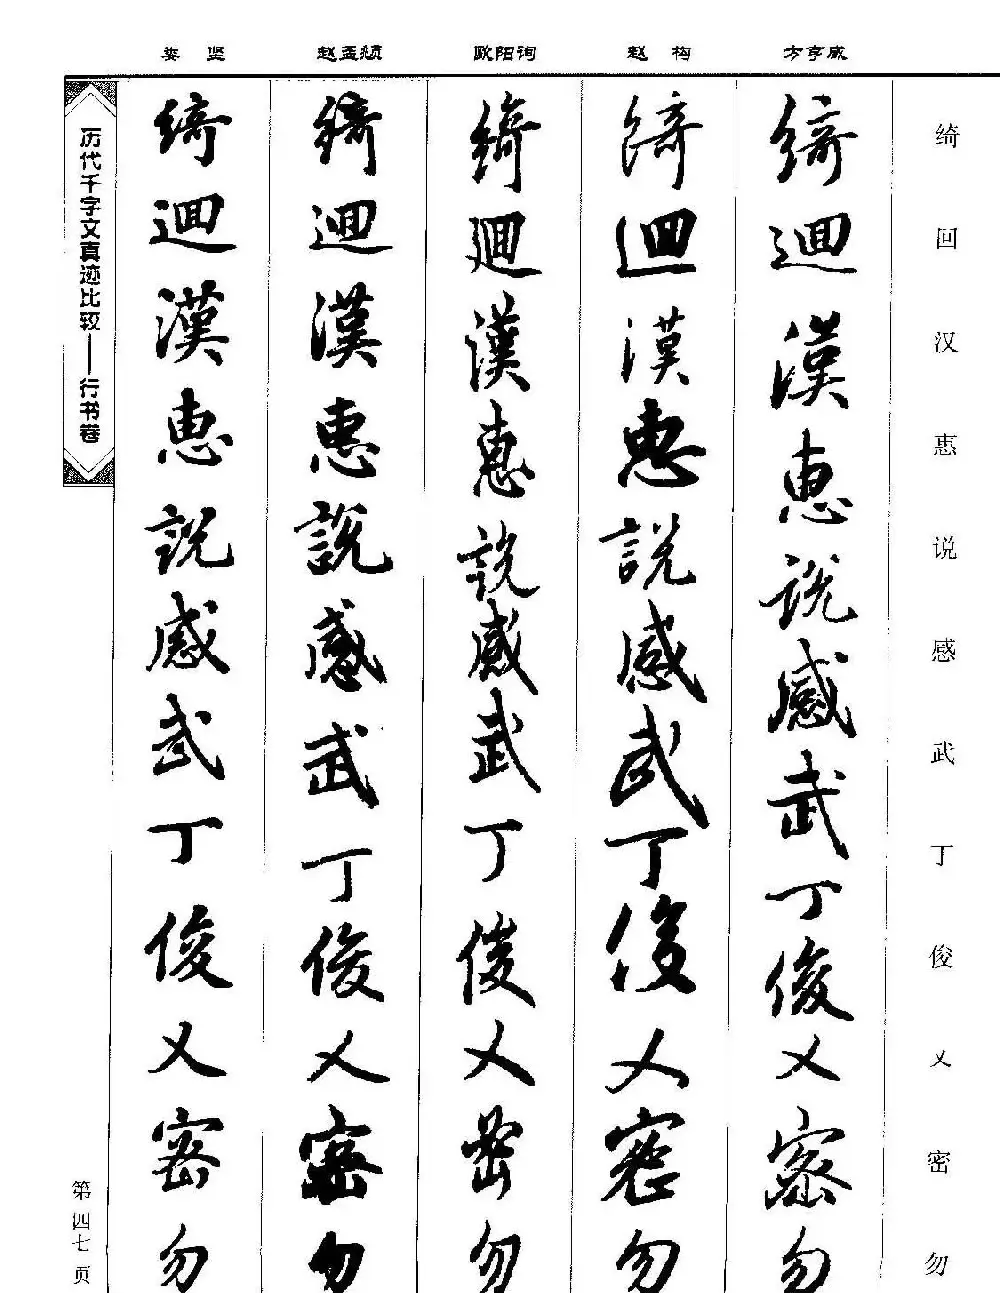 娄坚 赵孟頫 欧阳询 赵构 方孝孺
绮回汉惠说感武丁俊乂密勿
綺迴漢惠說感武丁俊乂密勿
綺迴漢惠說感武丁俊乂密勿
綺迴漢惠說感武丁俊乂密勿
綺迴漢惠說感武丁俊乂密勿
綺迴漢惠說感武丁俊乂密勿
历代千字文真迹比较——行书卷
第四七页